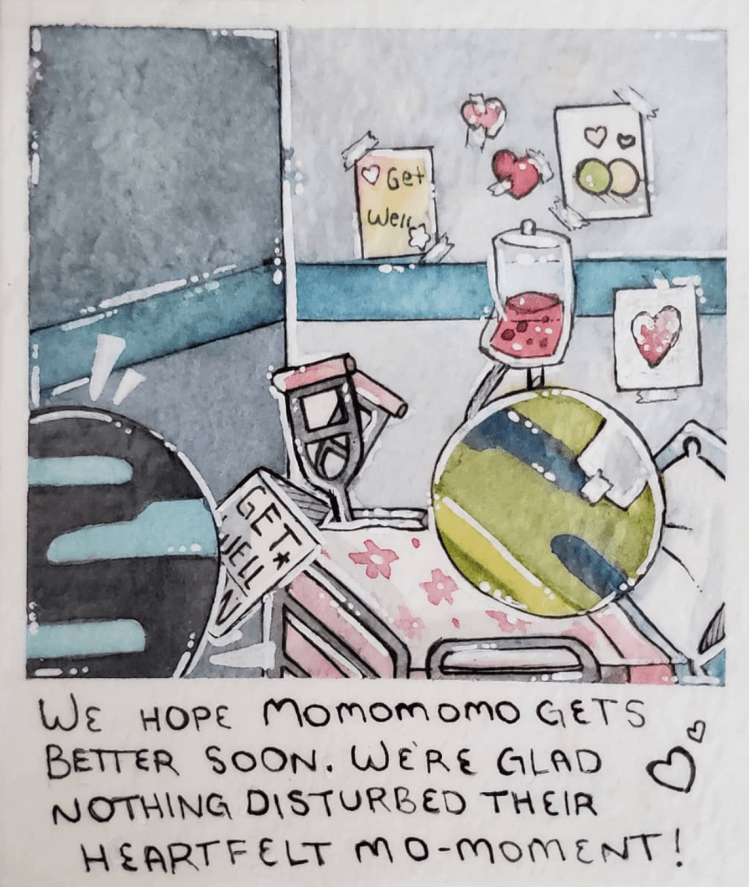 ♡ Get
Well
GET*
WELL
N
WE HOPE MOMOMOMO GETS
BETTER SOON. WE'RE GLAD
NOTHING DISTURBED THEIR
HEARTFELT MO-MOMENT!